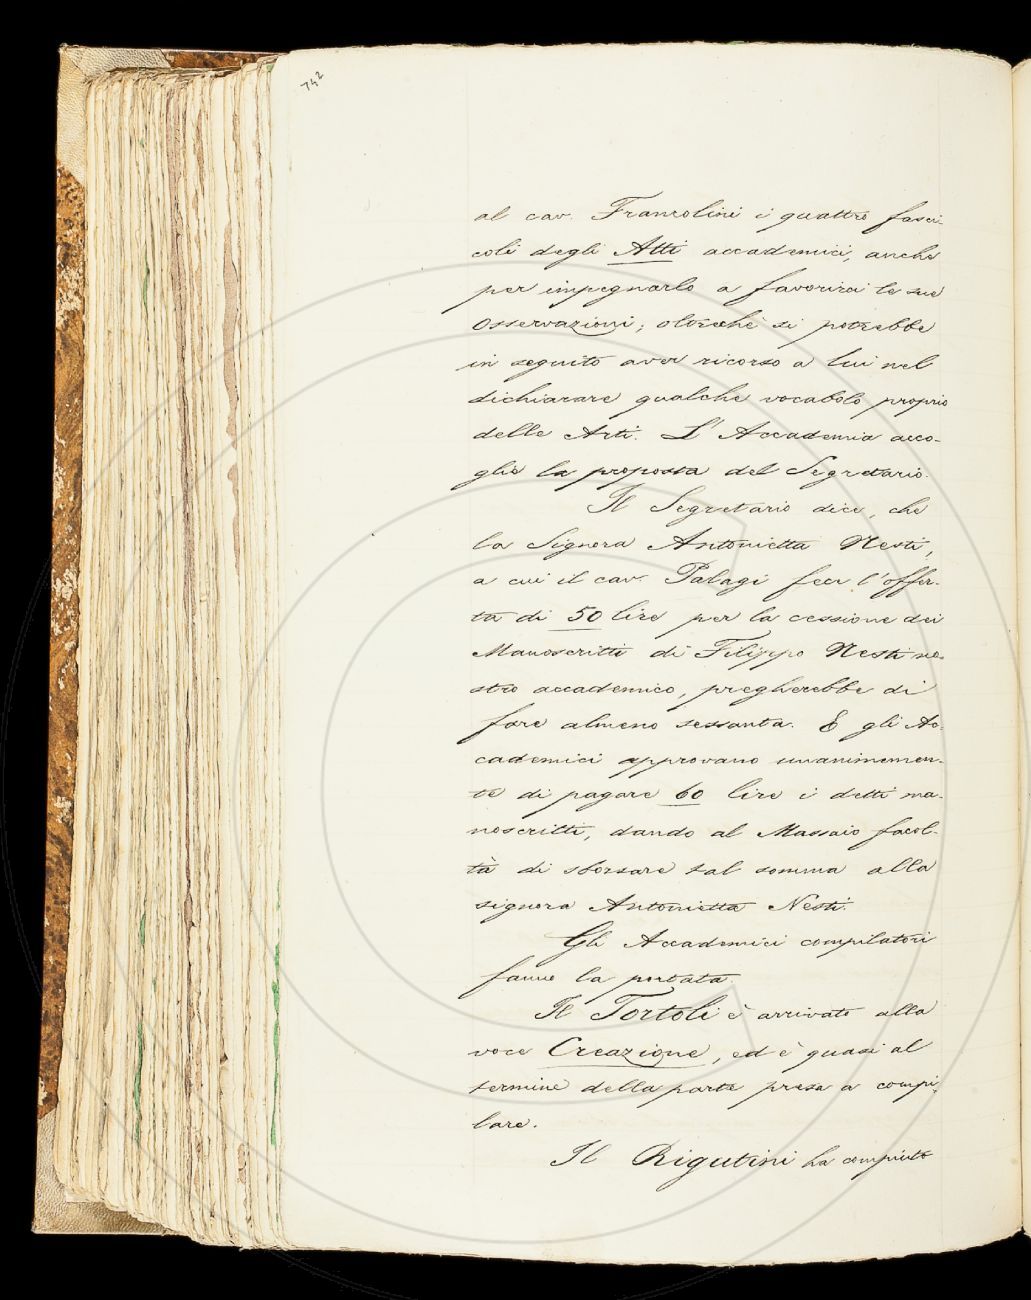 742
al cav. Francolini i quattro fasci-
coli degli Atti accademici, anche
per impegnarlo a favorirci le sue
Osservazioni; oltrechè si potrebbe
in seguito aver ricorso a lui nel
dichiarare qualche vocabolo proprio
delle Arti. L'Accademia acco-
glie la proposta del Segretario.
Il Segretario dice, che
la Signora Antonietta Nesti,
a cui il cav. Palagi fece l'offer-
ta di 50 lire per la cessione dei
Manoscritti di Filippo Nesti no-
stro accademico, pregherebbe di
fare almeno sessanta. E gli Ac-
cademici approvano unanimemen-
te di pagare 60 lire i detti ma-
noscritti, dando al Massaio facol-
tà di sborsare tal somma alla
signora Antonietta Nesti.
Gli Accademici compilatori
fanno la portata.
Il Tortoli è arrivato alla
voce Creazione, ed è quasi al
termine della parte presa a compi-
lare.
Il Rigutini ha compiuto